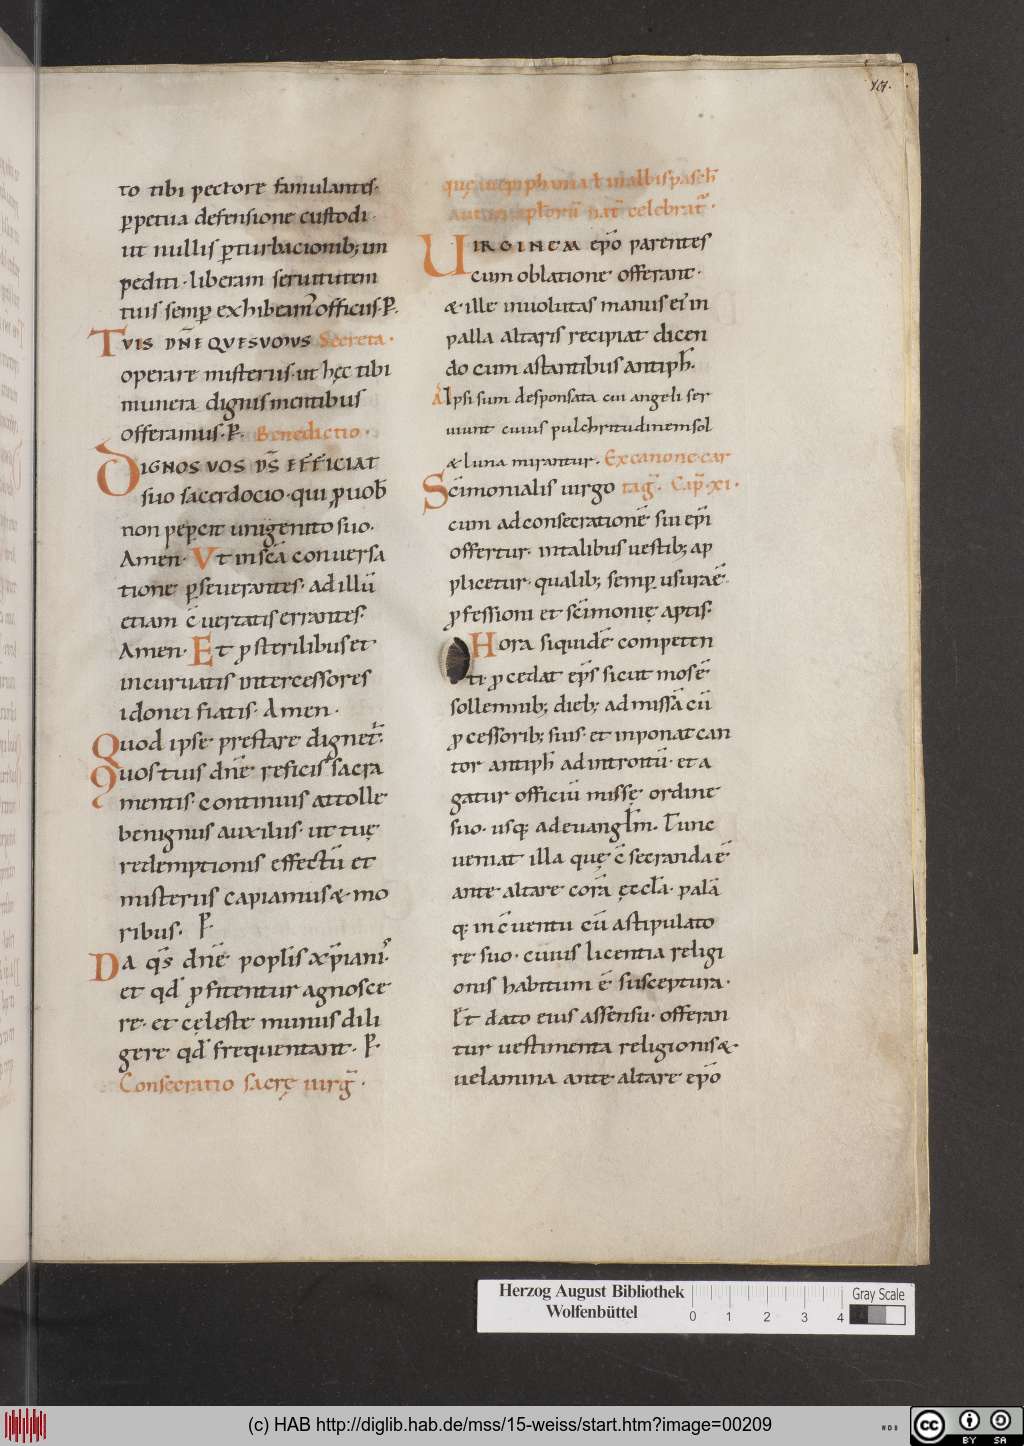 101.
to tibi pectore famulantes·
p̱petua defensione custodi·
ut nullis p̱turbacionib; im
pediti· liberam seruitutem
tuis semp̱ exhibeam̄ officiis· P̱·
TVIS DN̄E QVESVOMVS Secreta·
operare misteriis· ut hęc tibi
munera dignis mentibus
offeramus· P̱· Benedictio·
DIGNOS VOS DS̄ EFFICIAT
suo sacerdocio· qui p̱ uob̄
non pepercit unigenito suo·
Amen· Vt in sc̄a conuersa
tione p̱seuerantes· ad illū
etiam c̄uertatis errantes·
Amen· Et p̱ sterilibus et
incuruatis intercessores
idonei fiatis· Amen·
Quod ipse prestare dignet̄·
Quos tuis dn̄e reficis sacra
mentis· continuis attolle
benignus auxiliis· ut tuę
redemptionis effectū et
misteriis capiamus & mo
ribus· P̱
Da qs̄ dn̄e poplis̄ xp̄ianis·
et qd̄ p̱fitentur agnosce
re· et cęleste munus dili
gere qd̄ frequentant· P̱·
Consecratio sacrę uirḡ·
quę in epiphania ł in albis pasch̄
aut in aplōrū nat̄ celebrat̄·
VIRGINEM ep̄o parentes
cum oblatione offerant·
& ille inuolutas manus ei' in
palla altaris recipiat dicen
do cum astantibus antiph̄·
A Ipsi sum desponsata cui angeli ser
uiunt cuius pulchritudinem sol
& luna mirantur. Ex canone car
Sc̄imonialis uirgo taḡ· Cap̄· xi·
cum ad consecrationē sui ep̄i
offertur· in talibus uestib; ap
plicetur· qualib; semp̱ usura ē·
p̱fessioni et sc̄imonię aptis·
Hora siquidē competen
ti p̱cedat ep̄s sicut mos ē
sollemnib; dieb; ad missā cū
p̱cessorib; suis· et inponat can
tor antiph̄ ad introitū· et a
gatur officiū missę ordine
suo· usq; ad euangłm· Tunc
ueniat illa quę c̄secranda ē
ante altare corā ęccłā· palā
q; in c̄uentu cū astipulato
re suo· cuius licentia religi
onis habitum ē susceptura·
Et dato eius assensu· offeran
tur uestimenta religionis &
uelamina ante altare ep̄o
Herzog August Bibliothek
Wolfenbüttel
0 1 2 3 4
Gray Scale
(c) HAB http://diglib.hab.de/mss/15-weiss/start.htm?image=00209
WDB
cc BY SA